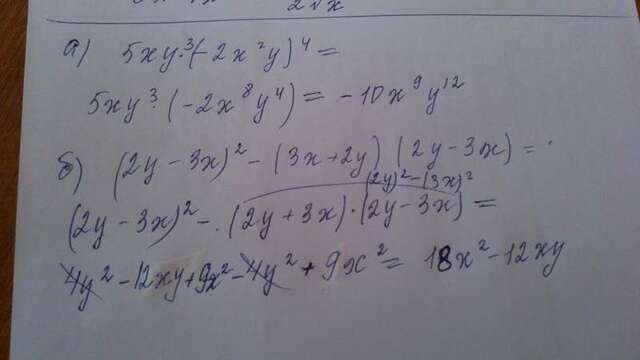 2√x
а) 5xy³·(-2x²y)⁴=
5xy³·(-2x⁸y⁴)=-10x⁹y¹²
б) (2y-3x)²-(3x+2y)(2y-3x)=
(2y)²-(3x)²
(2y-3x)²-(2y+3x)·(2y-3x)=
4y²-12xy+9x²-4y²+9x²=18x²-12xy